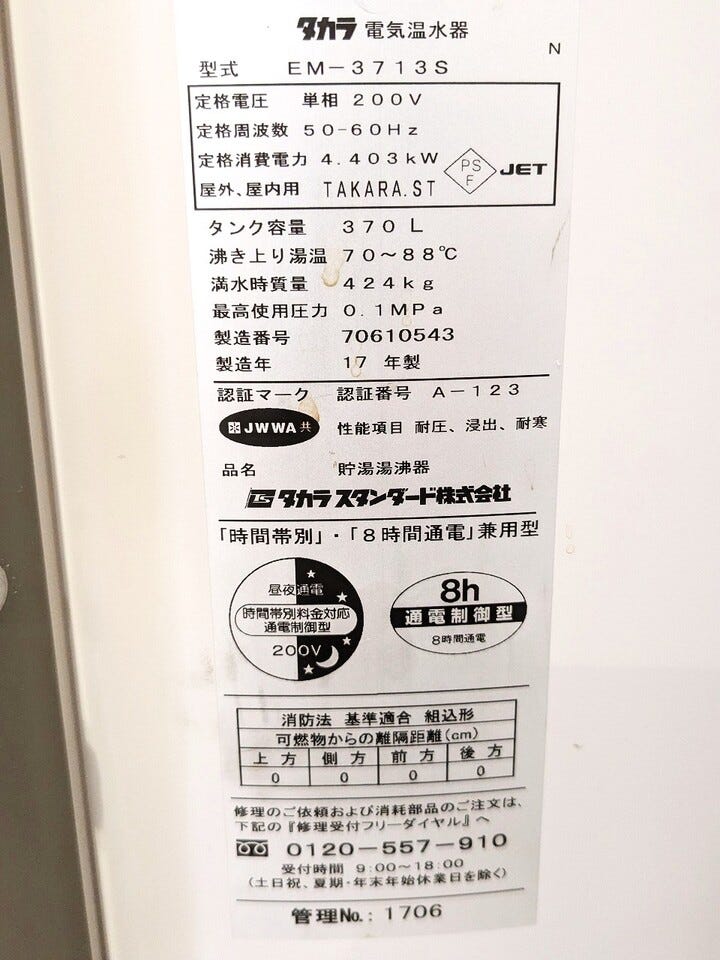 タカラ 電気温水器
N
型式 EM-3713S
定格電圧 単相 200V
定格周波数 50-60Hz
定格消費電力 4.403kW
PS
F
JET
屋外、屋内用 TAKARA.ST
タンク容量 370L
沸き上り湯温 70~88℃
満水時質量 424kg
最高使用圧力 0.1MPa
製造番号 70610543
製造年 17 年製
認証マーク 認証番号 A-123
JWWA 共 性能項目 耐圧、浸出、耐寒
品名 貯湯湯沸器
TS タカラスタンダード株式会社
「時間帯別」・「8時間通電」兼用型
昼夜通電
時間帯別料金対応
通電制御型
200V
8h
通電制御型
8時間通電
消防法 基準適合 組込形
可燃物からの離隔距離(cm)
上方 側方 前方 後方
0 0 0 0
修理のご依頼および消耗部品のご注文は、
下記の『修理受付フリーダイヤル』へ
0120-557-910
受付時間 9:00~18:00
(土日祝、夏期・年末年始休業日を除く)
管理No.: 1706